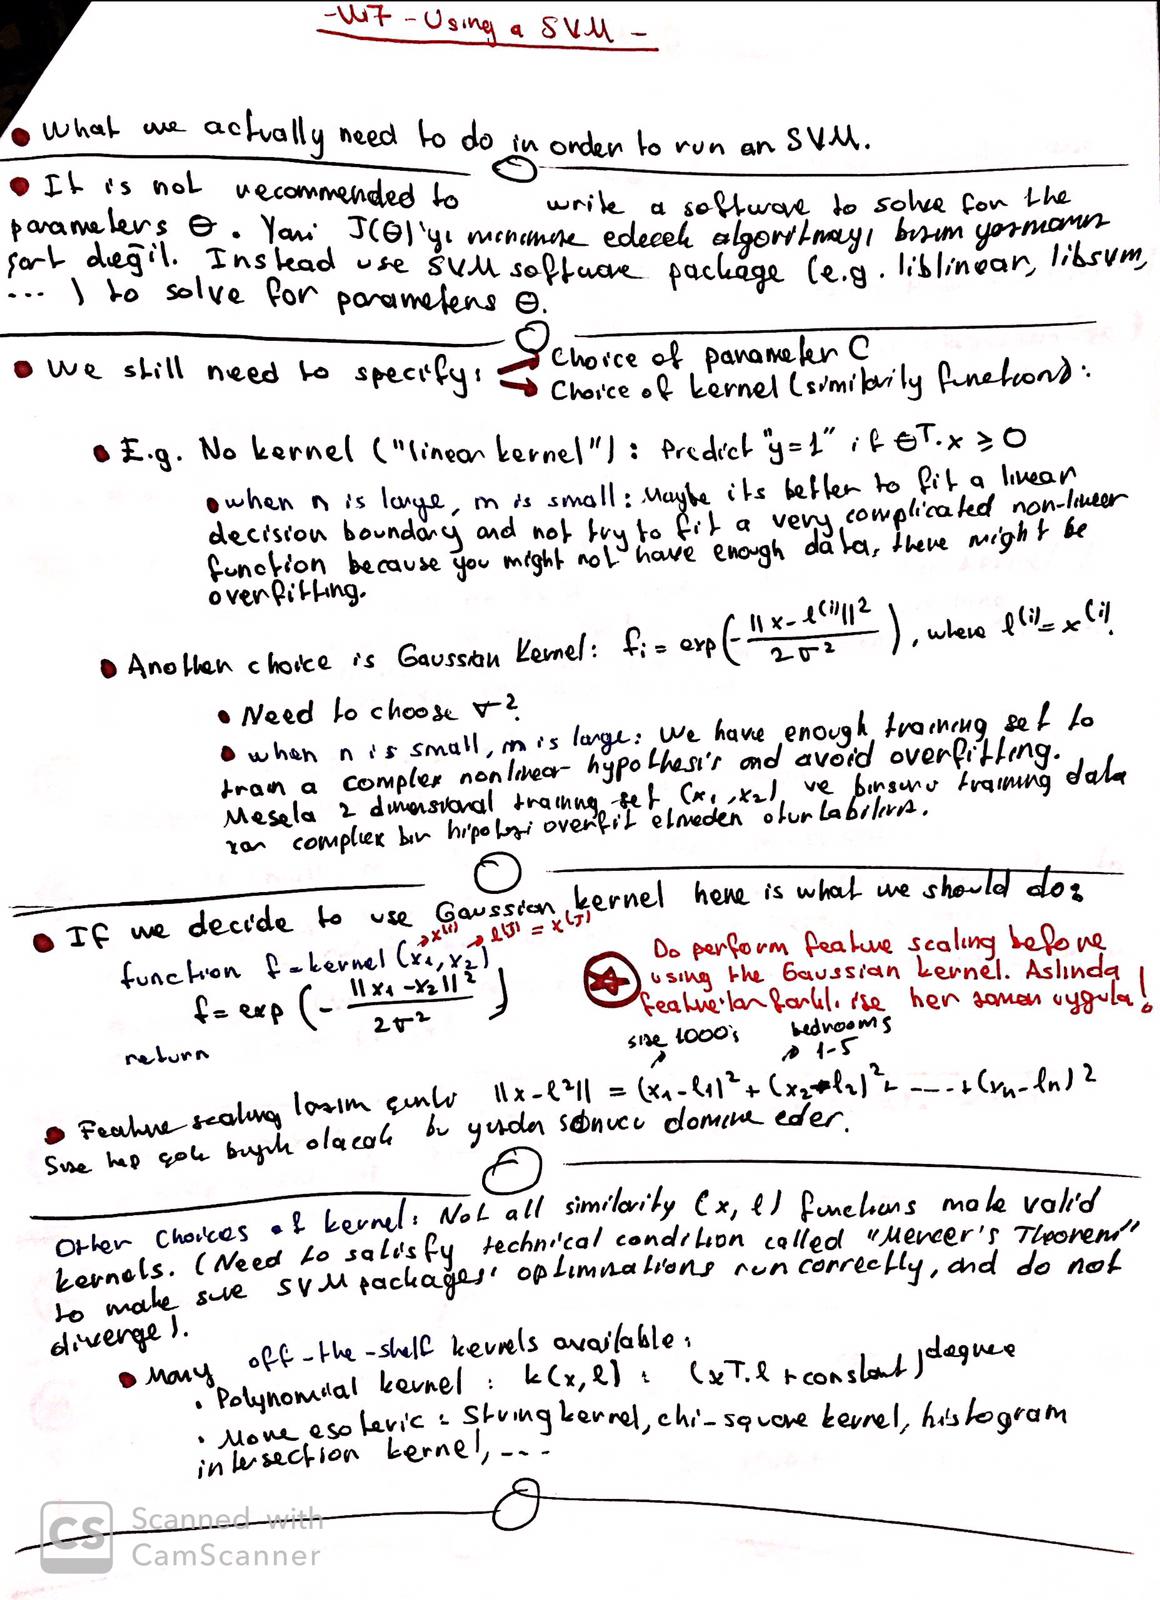 - W7 - Using a SVM -
• What we actually need to do in order to run an SVM.
• It is not recommended to write a software to solve for the
parameters θ. Yani J(θ)'yı minimize edecek algoritmayı bizim yazmamız
şart değil. Instead use SVM software package (e.g. liblinear, libsvm,
...) to solve for parameters θ.
• We still need to specify: → Choice of parameter C
→ Choice of kernel (similarity function):
• E.g. No kernel ("linear kernel"): Predict "y=1" if θT.x ≥ 0
• when n is large, m is small: Maybe its better to fit a linear
decision boundary and not try to fit a very complicated non-linear
function because you might not have enough data, there might be
overfitting.
• Another choice is Gaussian Kernel: fi = exp(-||x-l(i)||²/2σ²), where l(i) = x(i).
• Need to choose σ².
• when n is small, m is large: We have enough training set to
train a complex nonlinear hypothesis and avoid overfitting.
Mesela 2 dimensional training set (x1, x2) ve training data
complex bir hipotezi overfit etmeden oturtabiliriz.
• If we decide to use Gaussian kernel here is what we should do:
→ x(i) → l(j) = x(j)
function f = kernel (x1, x2)
f = exp (-||x1-x2||²/2σ²)
return
Do perform feature scaling before
using the Gaussian kernel. Aslında
feature'lar farklı ise her zaman uygula!
size 1000's bedrooms
1-5
• Feature scaling lazım çünkü ||x-l²|| = (x1-l1)² + (x2-l2)² + ---- + (xn-ln)²
Size hep çok büyük olacak bu yüzden sonucu domine eder.
Other Choices of kernel: Not all similarity (x, l) functions make valid
kernels. (Need to satisfy technical condition called "Mercer's Theorem"
to make sure SVM packages' optimizations run correctly, and do not
diverge).
• Many off-the-shelf kernels available:
• Polynomial kernel: k(x, l): (xT.l + constant)degree
• More esoteric: String kernel, chi-square kernel, histogram
intersection kernel, ---
CS Scanned with
CamScanner